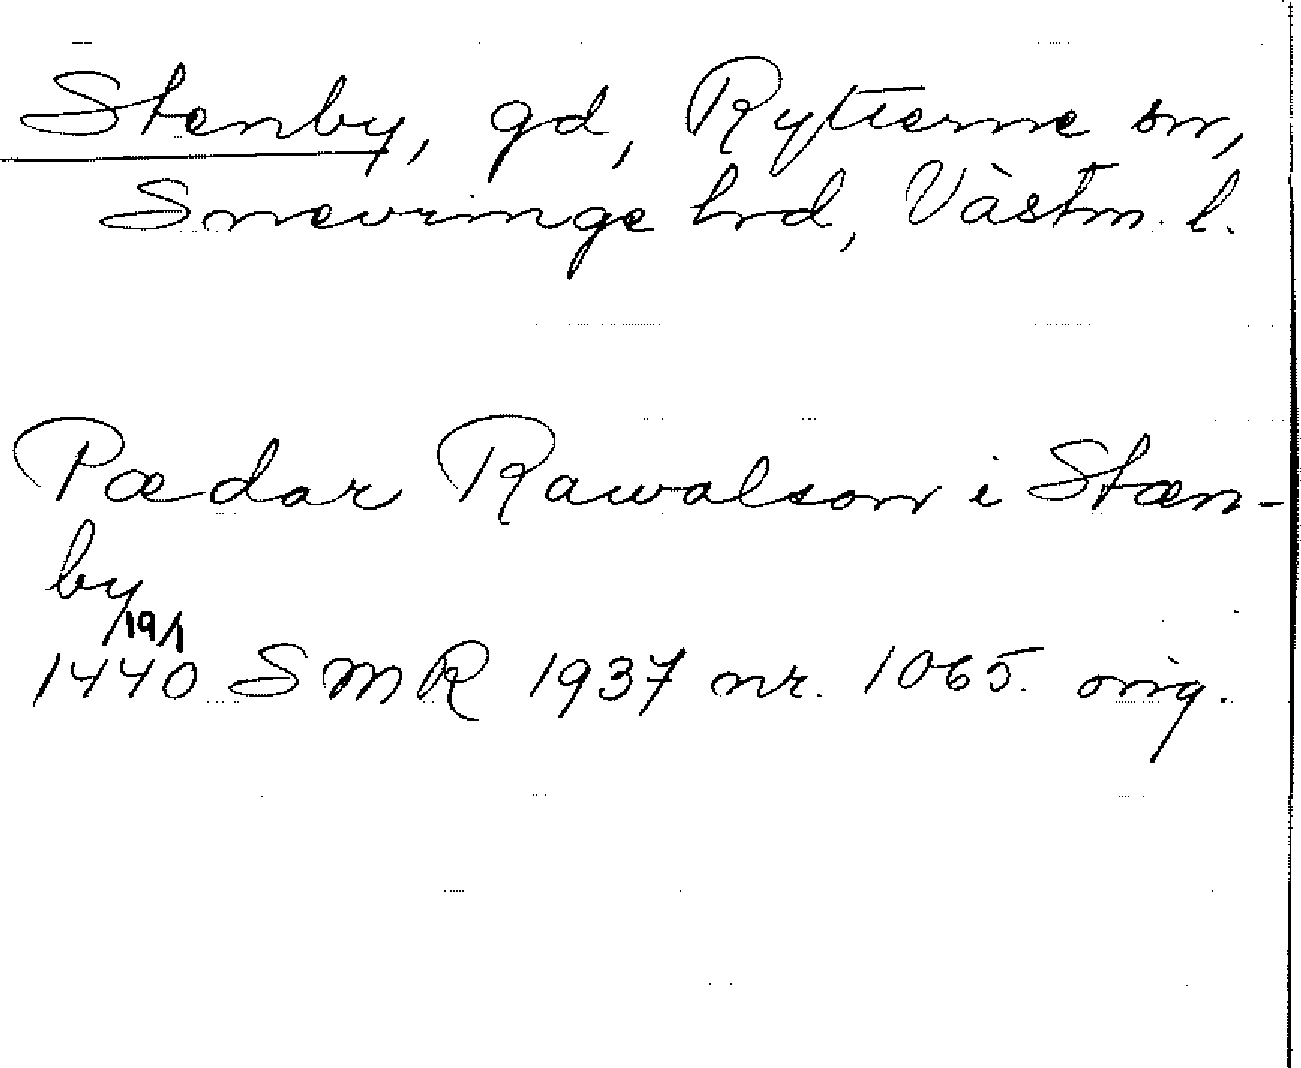 Stenby, gd, Rytterne sn,
Snevringe hrd, Västm. l.
Pædar Rawalson i Stæn-
by
19/1
1440 SMR 1937 nr. 1065. orig.